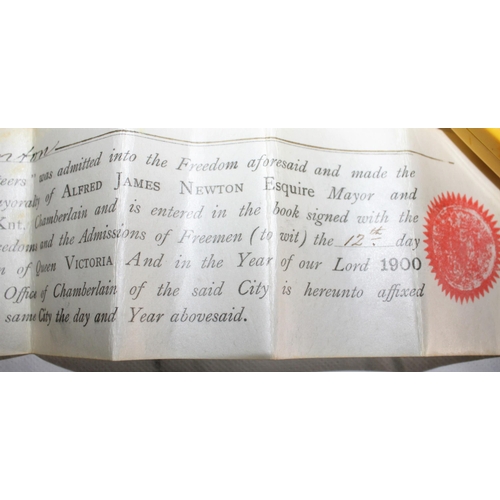 eers" was admitted into the Freedom aforesaid and made the
ayoralty of ALFRED JAMES NEWTON Esquire Mayor and
Knt. Chamberlain and is entered in the book signed with the
eedom and the Admissions of Freemen (to wit) the 12th. day
n of Queen VICTORIA And in the Year of our Lord 1900
Office of Chamberlain of the said City is hereunto affixed
same City the day and Year abovesaid.